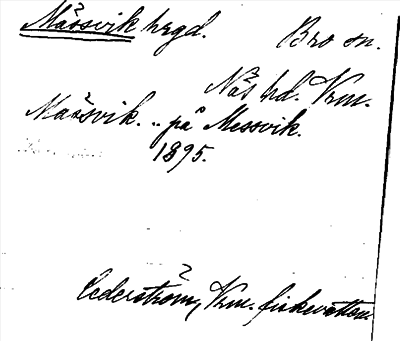 Mässvik hrgd. Bro sn.
Näs hd. Vrm.
Mässvik. .. på Messvik.
1895.
Cederström, Vrm. fiskevatten